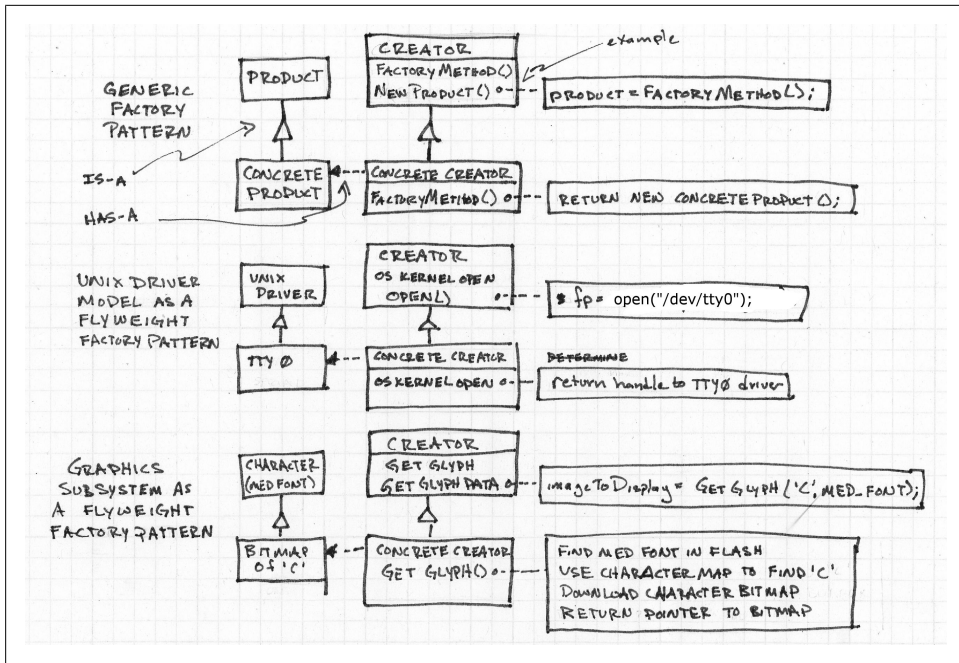 GENERIC
FACTORY
PATTERN
IS-A
HAS-A
PRODUCT
CONCRETE
PRODUCT
CREATOR
FACTORYMETHOD()
NEWPRODUCT()
example
PRODUCT = FACTORYMETHOD();
CONCRETE CREATOR
FACTORYMETHOD()
RETURN NEW CONCRETEPRODUCT();
UNIX DRIVER
MODEL AS A
FLYWEIGHT
FACTORY PATTERN
UNIX
DRIVER
TTYØ
CREATOR
OS KERNEL OPEN
OPEN()
fp = open("/dev/tty0");
CONCRETE CREATOR
OS KERNEL OPEN
DETERMINE
return handle to TTYØ driver
GRAPHICS
SUBSYSTEM AS
A FLYWEIGHT
FACTORY PATTERN
CHARACTER
(MED FONT)
BITMAP
of 'C'
CREATOR
GET GLYPH
GET GLYPH DATA
imageToDisplay = GETGLYPH('C', MED_FONT);
CONCRETE CREATOR
GET GLYPH()
FIND MED FONT IN FLASH
USE CHARACTER MAP TO FIND 'C'
DOWNLOAD CHARACTER BITMAP
RETURN POINTER TO BITMAP